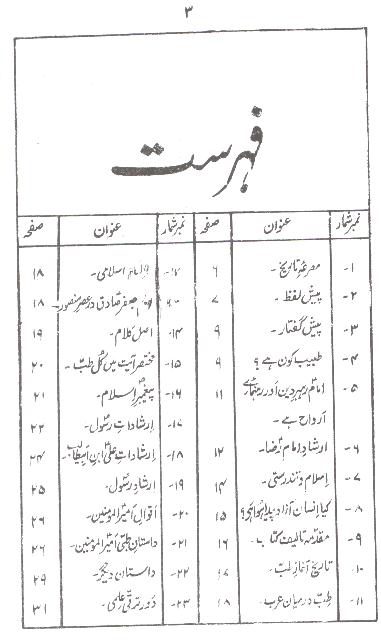 ۳
فہرست
نمبر شمار عنوان صفحہ
۱- مصرعۂ تاریخ۔ ۶
۲- پیش لفظ۔ ۷
۳- پیش گفتار۔ ۹
۴- طبیب کون ہے؟ ۹
۵- امام رہبر دین اور رہنمائے ۱۱
ارواح ہے۔
۶- ارشاد امام رضا۔ ۱۲
۷- اسلام و تندرستی۔ ۱۴
۸- کیا انسان آزاد پیدا ہوا ہے؟ ۱۵
۹- مقدمہ تالیف کتاب۔ ۱۶
۱۰- تاریخ آغاز طب۔ ۱۷
۱۱- طب در میان عرب۔ ۱۸
نمبر شمار عنوان صفحہ
۱۲- اسلامی۔ ۱۸
جعفر صادق در عصر منصور۔ ۱۸
۱۴- اصل کلام۔ ۱۹
۱۵- مختصر آیت میں کل طب۔ ۲۰
۱۶- پیغمبر اسلام۔ ۲۱
۱۷- ارشادات رسول۔ ۲۲
۱۸- ارشادات علی ابن ابیطالب۔ ۲۴
۱۹- ارشاد رسول۔ ۲۵
۲۰- اقوال امیر المومنین۔ ۲۶
۲۱- داستان طبی امیر المومنین۔ ۲۶
۲۲- داستان دیگر۔ ۲۹
۲۳- دور ترقی علمی۔ ۳۱